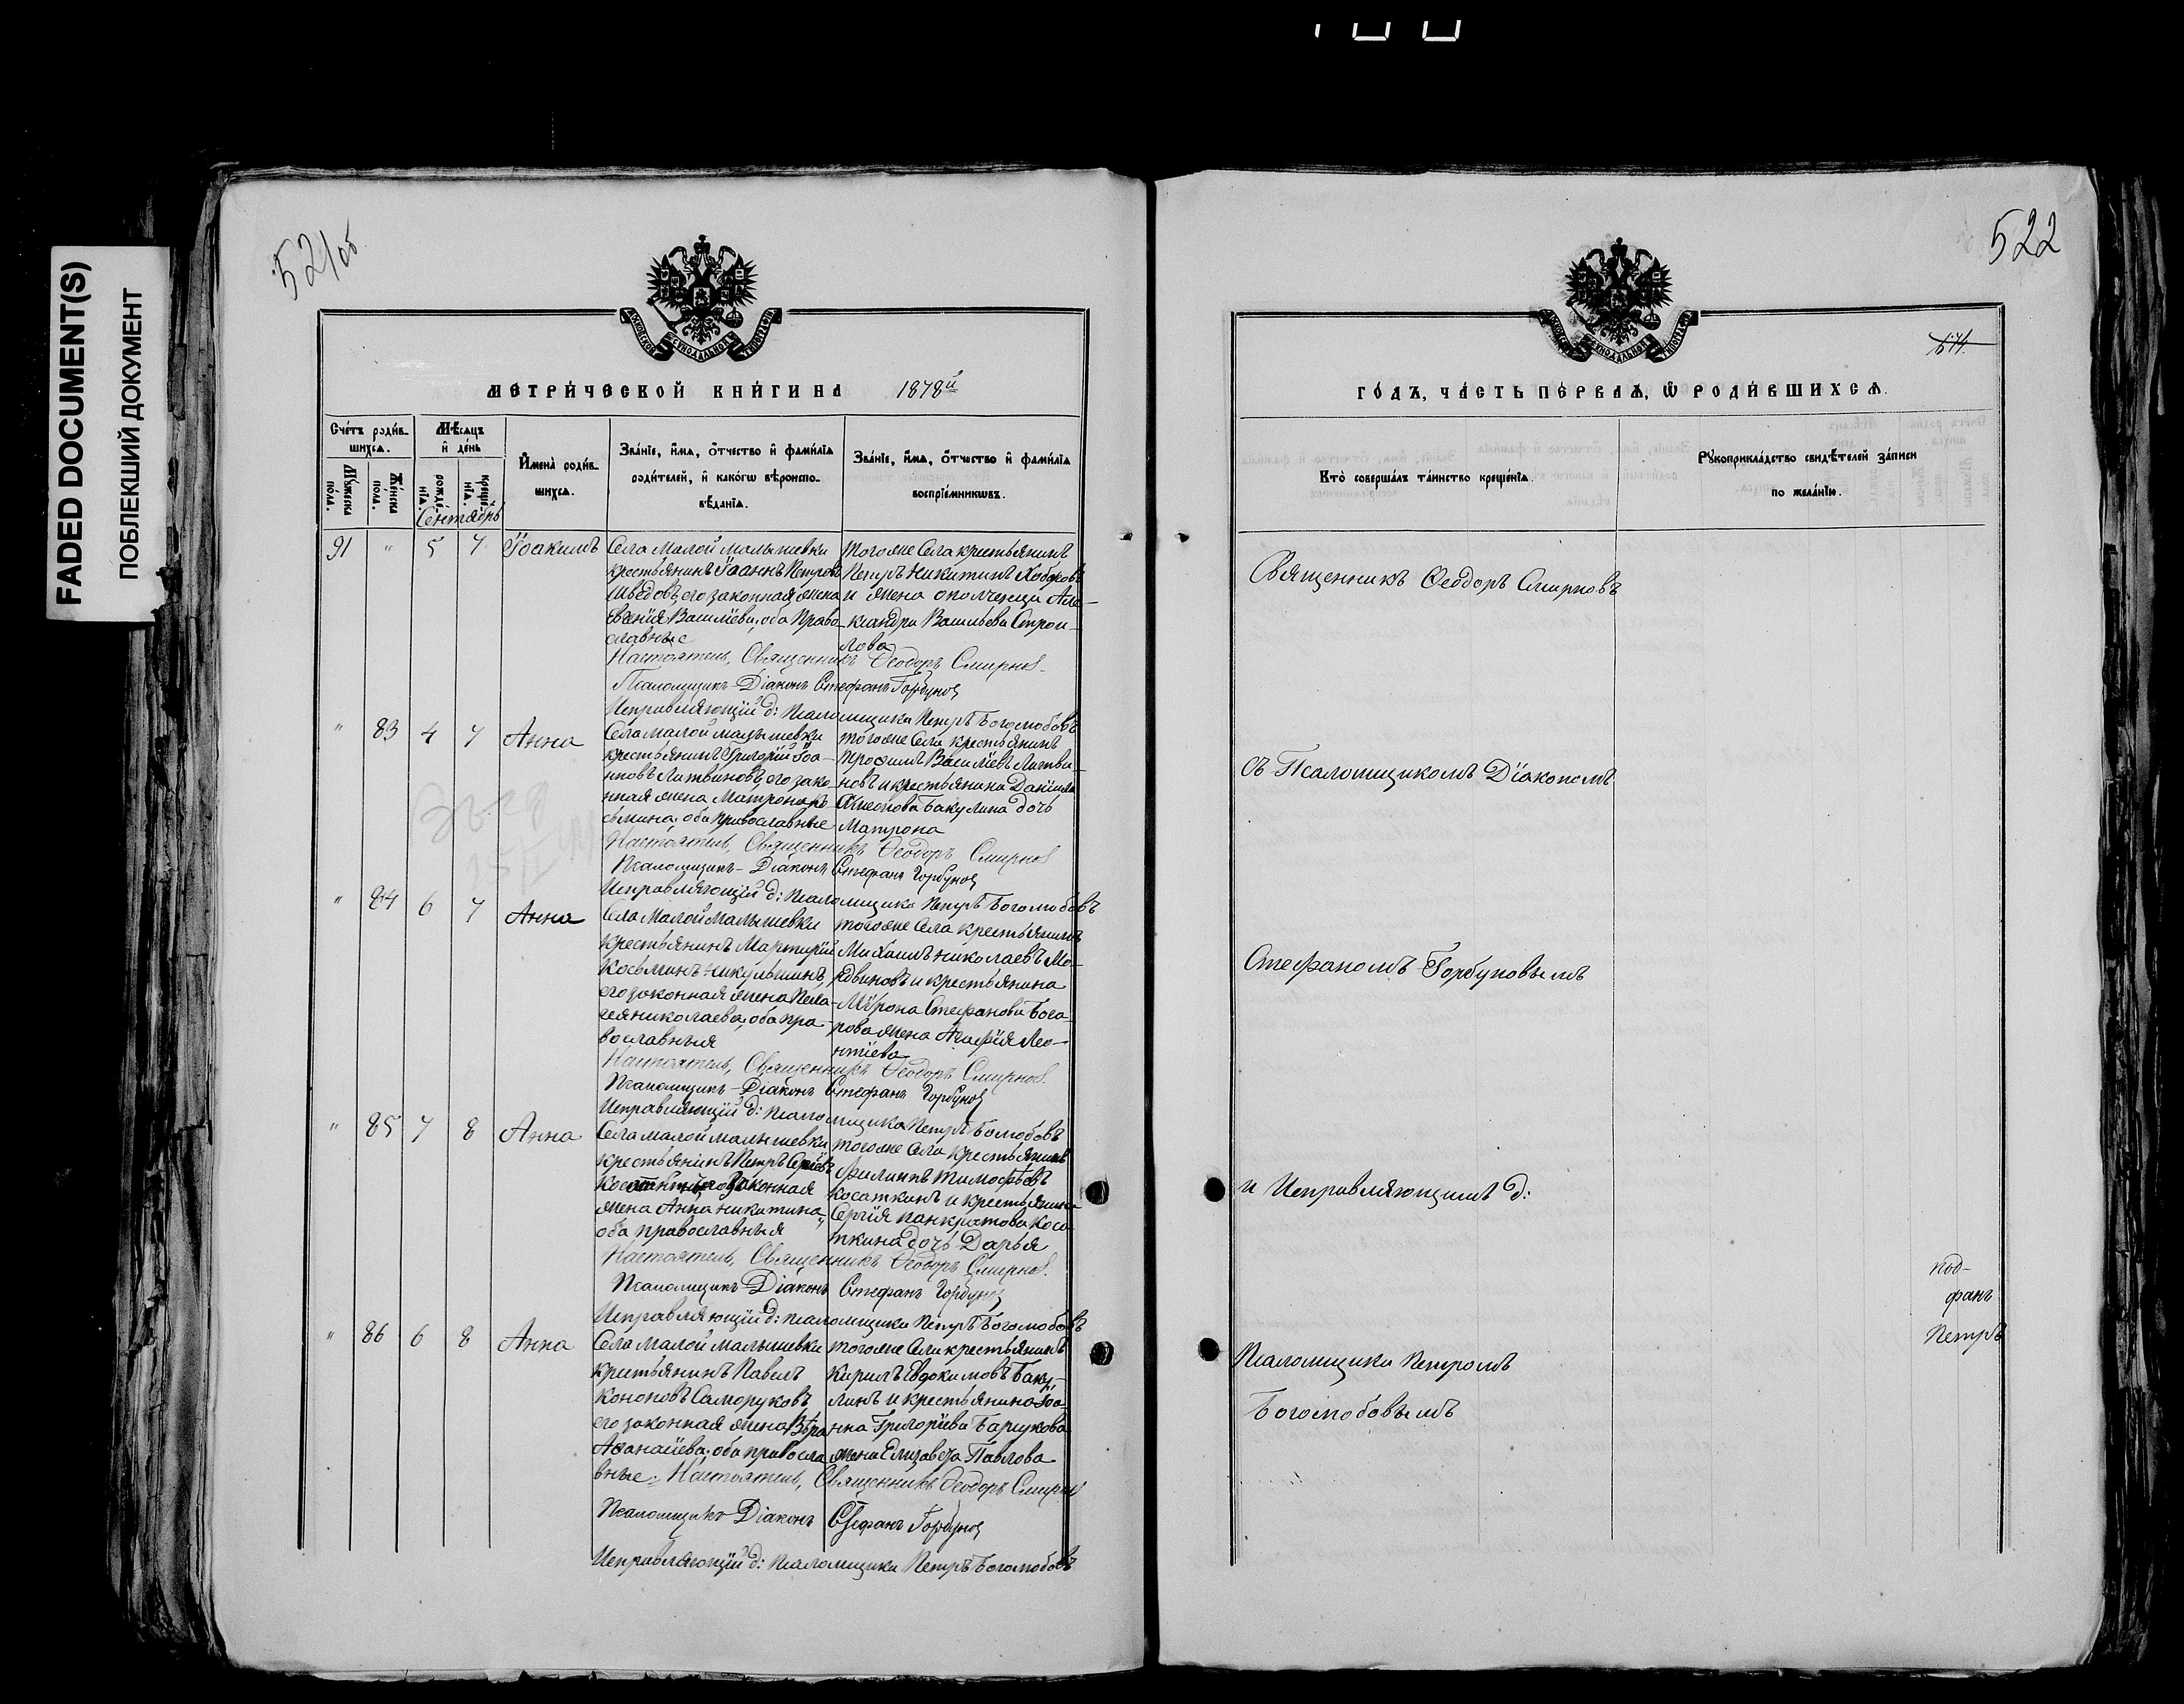 FADED DOCUMENT(S)
ПОБЛЕКШИЙ ДОКУМЕНТ
521об
МЕТРИЧЕСКОЙ КНИГИ НА 1878й
Счетъ родив-
шихся.
Мужеска пола.
Женска пола.
Мѣсяцъ и день
рожденія.
крещенія.
Имена родив-
шихся.
Званіе, имя, отчество и фамилія
родителей, и какогω вѣроиспо-
вѣданія.
Званіе, имя, отчество и фамилія
воспріемникωвъ.
Сентябрь
91 " 5 7 Іоакимъ
Села Малой Малышевки
крестьянинъ Іоаннъ Петровъ
Шведовъ, его законная жена
Евгенія Васильева, оба Право-
славные
тогоже Села крестьянинъ
Петръ Никитинъ Ходоровъ
и жена ополченца Але-
ксандра Васильева Строи-
лова
Настоятель, Священникъ Ѳеодоръ Смирнов.
Псаломщикъ-Діаконъ Стефанъ Горбунов
Исправляющій д: псаломщика Петръ Боголюбовъ
" 83 4 7 Анна
Села Малой Малышевки
крестьянинъ Григорій Іоа-
нновъ Литвиновъ, его зако-
нная жена Матрона Ко-
сьмина, оба православные
тогоже Села крестьянинъ
Трофимъ Васильевъ Литви-
новъ и крестьянина Даніила
Симеонова Бакулина дочь
Матрона
Настоятель, Священникъ Ѳеодоръ Смирнов
Псаломщикъ-Діаконъ Стефанъ Горбунов
Исправляющій д: псаломщика Петръ Боголюбовъ
" 84 6 7 Анна
Села Малой Малышевки
крестьянинъ Мартирій
Косьминъ Никульшинъ,
его законная жена Пела-
гея Николаева, оба пра-
вославныя
тогоже Села крестьянинъ
Михаилъ Николаевъ Мо-
рдвиновъ и крестьянина
Мѵрона Стефанова Бога-
рова жена Агафія Лео-
нтіева
Настоятель, Священникъ Ѳеодоръ Смирнов.
Псаломщикъ-Діаконъ Стефанъ Горбунов
Исправляющій д: псаломщика Петръ Боголюбовъ
" 85 7 8 Анна
Села Малой Малышевки
крестьянинъ Петръ Сергіевъ
законная
жена Анна Никитина,
оба православныя
тогоже Села крестьянинъ
Филиппъ Тимофѣевъ
Косаткинъ и крестьянина
Сергія Панкратова Коса-
ткина дочь Дарья
Настоятель, Священникъ Ѳеодоръ Смирнов.
Псаломщикъ Діаконъ Стефанъ Горбунов
Исправляющій д: псаломщика Петръ Боголюбовъ
" 86 6 8 Анна
Села Малой Малышевки
крестьянинъ Павелъ
Кононовъ Саморуковъ
его законная жена Вѣра
Аѳанасіева, оба правосла-
вные.
тогоже Села крестьянинъ
Кирилъ Евдокимовъ Баку-
линъ и крестьянина Іоа-
нна Григоріева Барсукова
жена Елизавета Павлова
Настоятель, Священникъ Ѳеодоръ Смирнов
Псаломщикъ Діаконъ Стефанъ Горбунов
Исправляющій д: псаломщика Петръ Боголюбовъ
522
ГОДЪ, ЧАСТЬ ПЕРВАЯ, Ѿ РОДИВШИХСЯ.
Кто совершалъ таинство крещенія.
Рукоприкладство свидѣтелей записи
по желанію.
Священникъ Ѳеодоръ Смирновъ
съ Псаломщикомъ Діакономъ
Стефаномъ Горбуновымъ
и Исправляющимъ д:
Псаломщика Петромъ
Боголюбовымъ
фанъ
Петръ